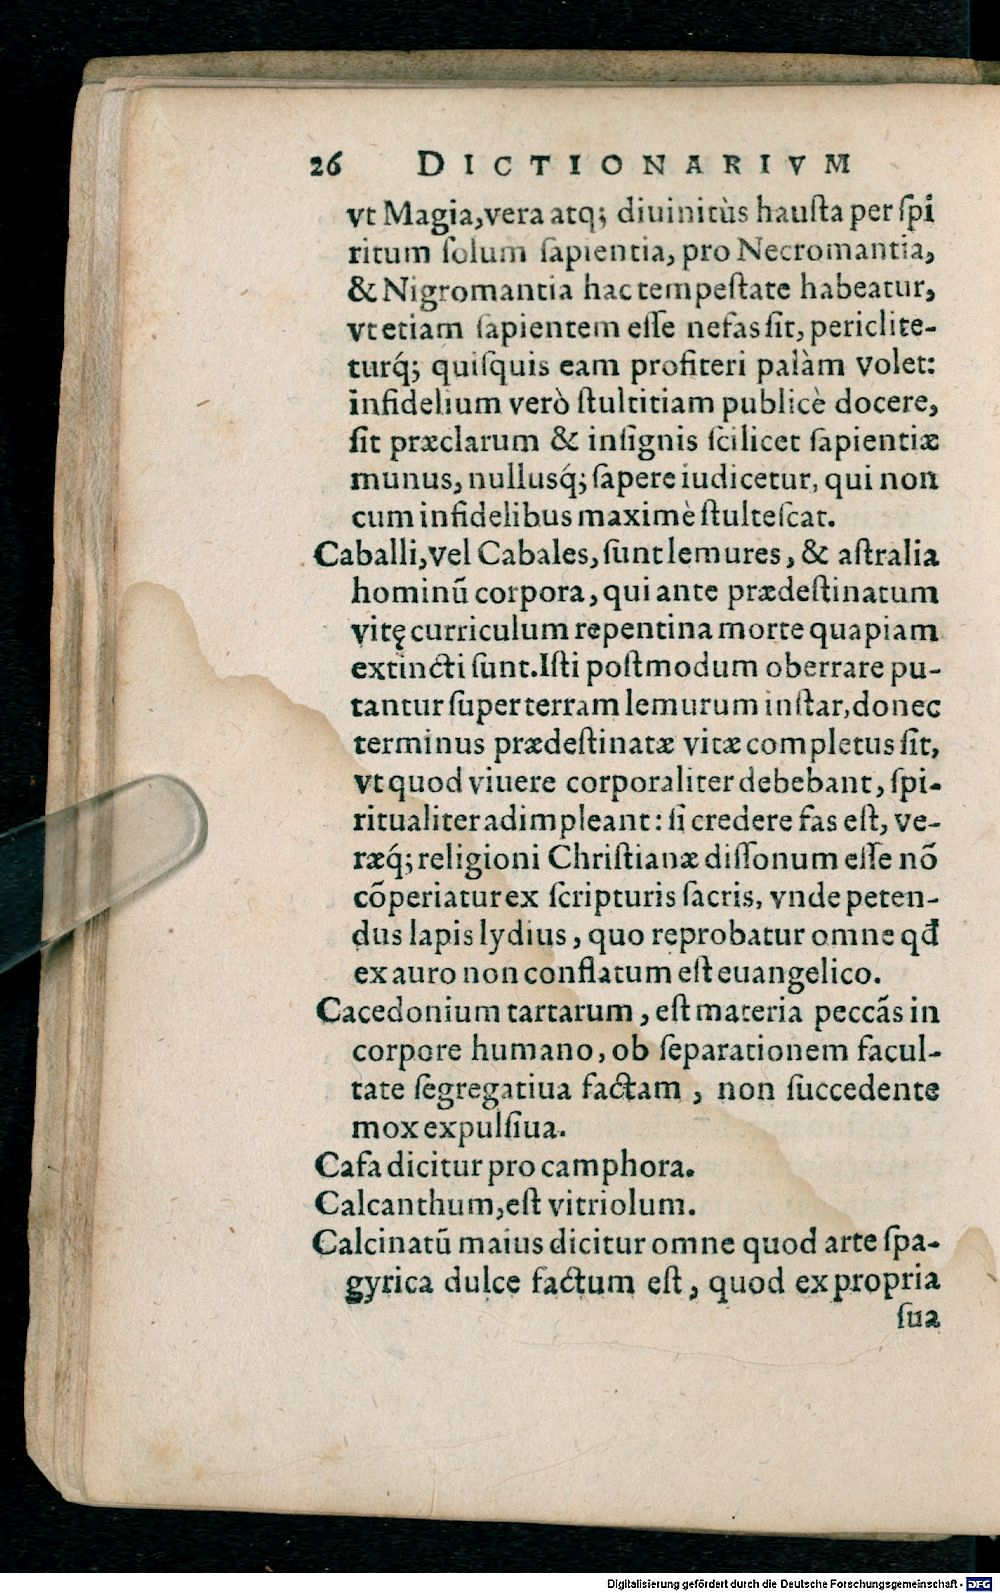 26 DICTIONARIVM
vt Magia, vera atq; diuinitùs hausta per spi
ritum solum sapientia, pro Necromantia,
& Nigromantia hac tempestate habeatur,
vt etiam sapientem esse nefas sit, periclite-
turq́; quisquis eam profiteri palàm volet:
infidelium verò stultitiam publicè docere,
sit præclarum & insignis scilicet sapientiæ
munus, nullusq́; sapere iudicetur, qui non
cum infidelibus maximè stultescat.
Caballi, vel Cabales, sunt lemures, & astralia
hominū corpora, qui ante prædestinatum
vitę curriculum repentina morte quapiam
extincti sunt. Isti postmodum oberrare pu-
tantur super terram lemurum instar, donec
terminus prædestinatæ vitæ completus sit,
vt quod viuere corporaliter debebant, spi-
ritualiter adimpleant: si credere fas est, ve-
ræq́; religioni Christianæ dissonum esse nō
cōperiatur ex scripturis sacris, vnde peten-
dus lapis lydius, quo reprobatur omne qđ
ex auro non conflatum est euangelico.
Cacedonium tartarum, est materia peccās in
corpore humano, ob separationem facul-
tate segregatiua factam, non succedente
mox expulsiua.
Cafa dicitur pro camphora.
Calcanthum, est vitriolum.
Calcinatū maius dicitur omne quod arte spa-
gyrica dulce factum est, quod ex propria
sua
Digitalisierung gefördert durch die Deutsche Forschungsgemeinschaft - DFG